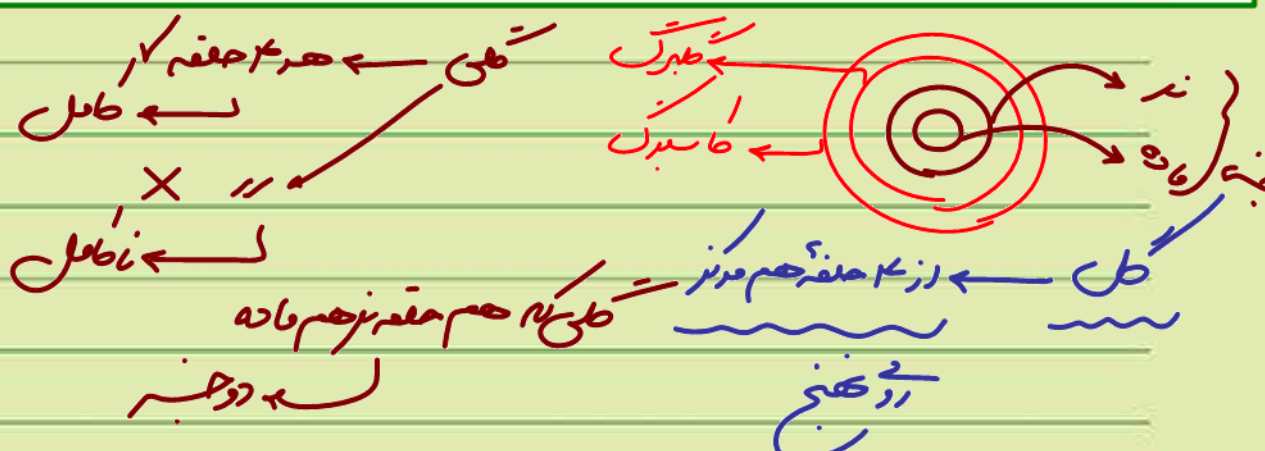 گلی ← هر ۴ حلقه ✓
↳ کامل
〃 ×
↳ ناکامل
گلبرگ
کاسبرگ
نر
ماده
گل ← از ۴ حلقهٔ هم مرکز
روی نهنج
گلی که هم حلقه نر هم ماده
↳ دو جنسی